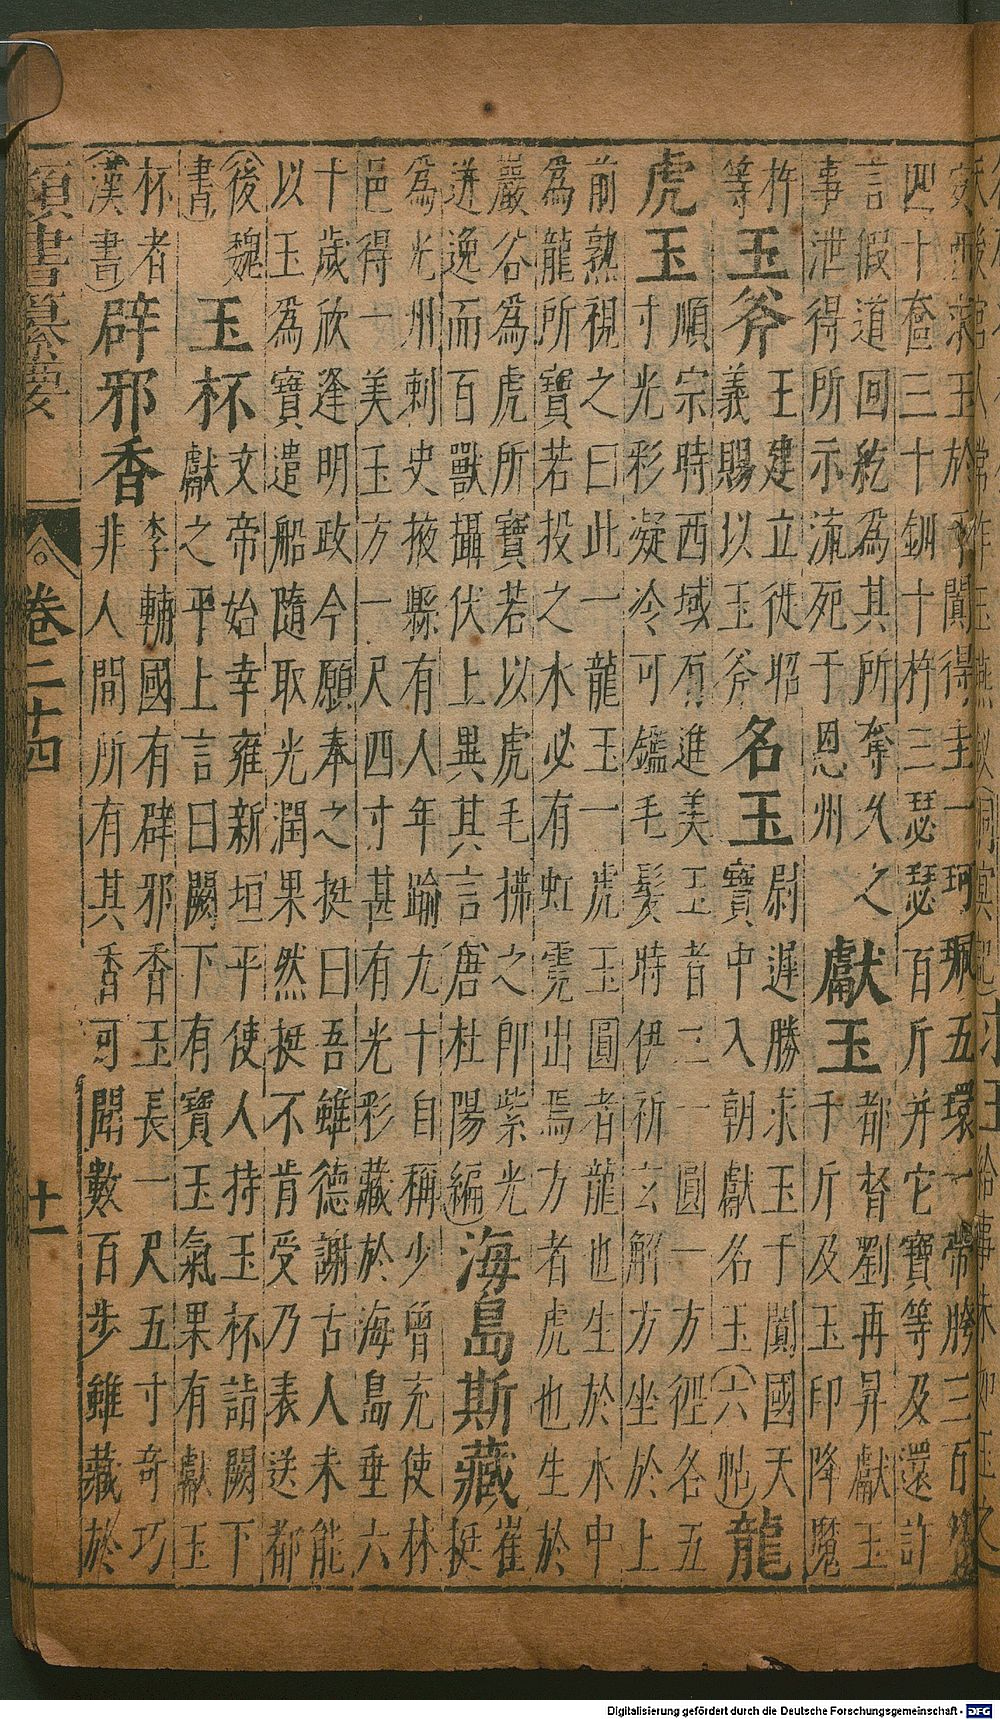 安西求玉於于闐得圭一珂珮五環一帶胯三百簪
四十奩三十釧十杵三瑟瑟百斤并它寶等及還詐
言假道回紇為其所奪久之
事泄得所示流死于恩州
獻玉
都督劉再昇獻玉
千斤及玉印降魔
杵
等
玉斧
王建立從昭
義賜以玉斧
名玉
尉遲勝求玉于闐國天
寶中入朝獻名玉(六帖)
龍
虎玉
順宗時西域有進美玉者二一圓一方徑各五
寸光彩凝冷可鑑毛髮時伊祈玄解方坐於上
前熟視之曰此一龍玉一虎玉圓者龍也生於水中
為龍所寶若投之水必有虹霓出焉方者虎也生於
巖谷為虎所寶若以虎毛拂之即紫光
迸逸而百獸攝伏上異其言(唐杜陽編)
海島斯藏
崔
挺
為光州刺史掖縣有人年踰九十自稱少曾充使林
邑得一美玉方一尺四寸甚有光彩藏於海島垂六
十歲欣逢明政今願奉之挺曰吾雖德謝古人未能
以玉為寶遣船隨取光潤果然挺不肯受乃表送都
(後魏
書)
玉杯
文帝始幸雍新垣平使人持玉杯詣闕下
獻之平上言曰闕下有寶玉氣果有獻玉
杯者
(漢書)
辟邪香
李輔國有辟邪香玉長一尺五寸奇巧
非人間所有其香可聞數百步雖藏於
類書纂要
卷二十四
十一
Digitalisierung gefördert durch die Deutsche Forschungsgemeinschaft - DFG